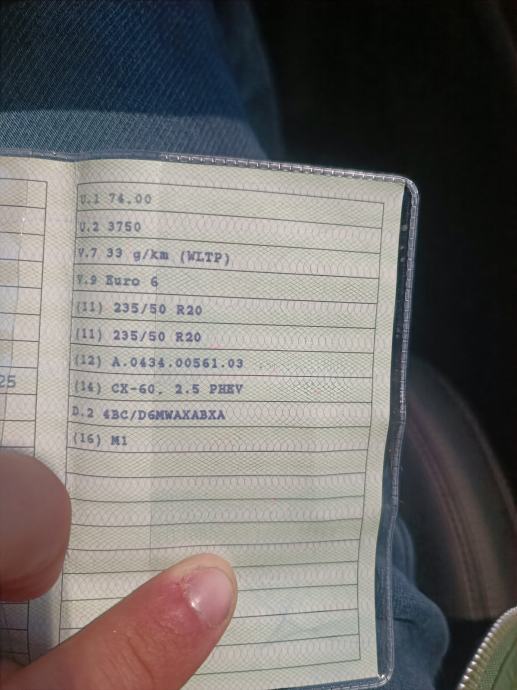 25
U.1 74.00
U.2 3750
V.7 33 g/km (WLTP)
V.9 Euro 6
(11) 235/50 R20
(11) 235/50 R20
(12) A.0434.00561.03
(14) CX-60, 2.5 PHEV
D.2 4BC/D6MWAXABXA
(16) M1